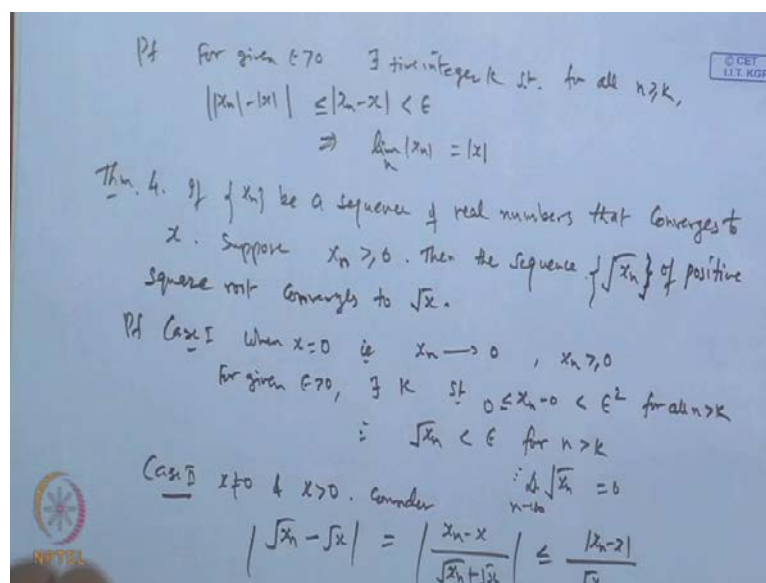 Pf For given ε>0 ∃ +ive integer k st. for all n≥k,
© CET
I.I.T. KGP
||xn|-|x|| ≤ |xn-x| < ε
⇒ lim n |xn| = |x|
Thm. 4. If {xn} be a sequence of real numbers that Converges to
x. Suppose xn ≥ 0. Then the sequence {√xn} of positive
square root converges to √x.
Pf Case I When x=0 ie xn → 0, xn ≥ 0
For given ε>0, ∃ K st 0 ≤ xn-0 < ε² for all n>k
∴ √xn < ε for n>k
∴ lt n→∞ √xn = 0
Case II x≠0 & x>0. Consider
|√xn - √x| = |xn-x / √xn+√x| ≤ |xn-x| / √x
NPTEL